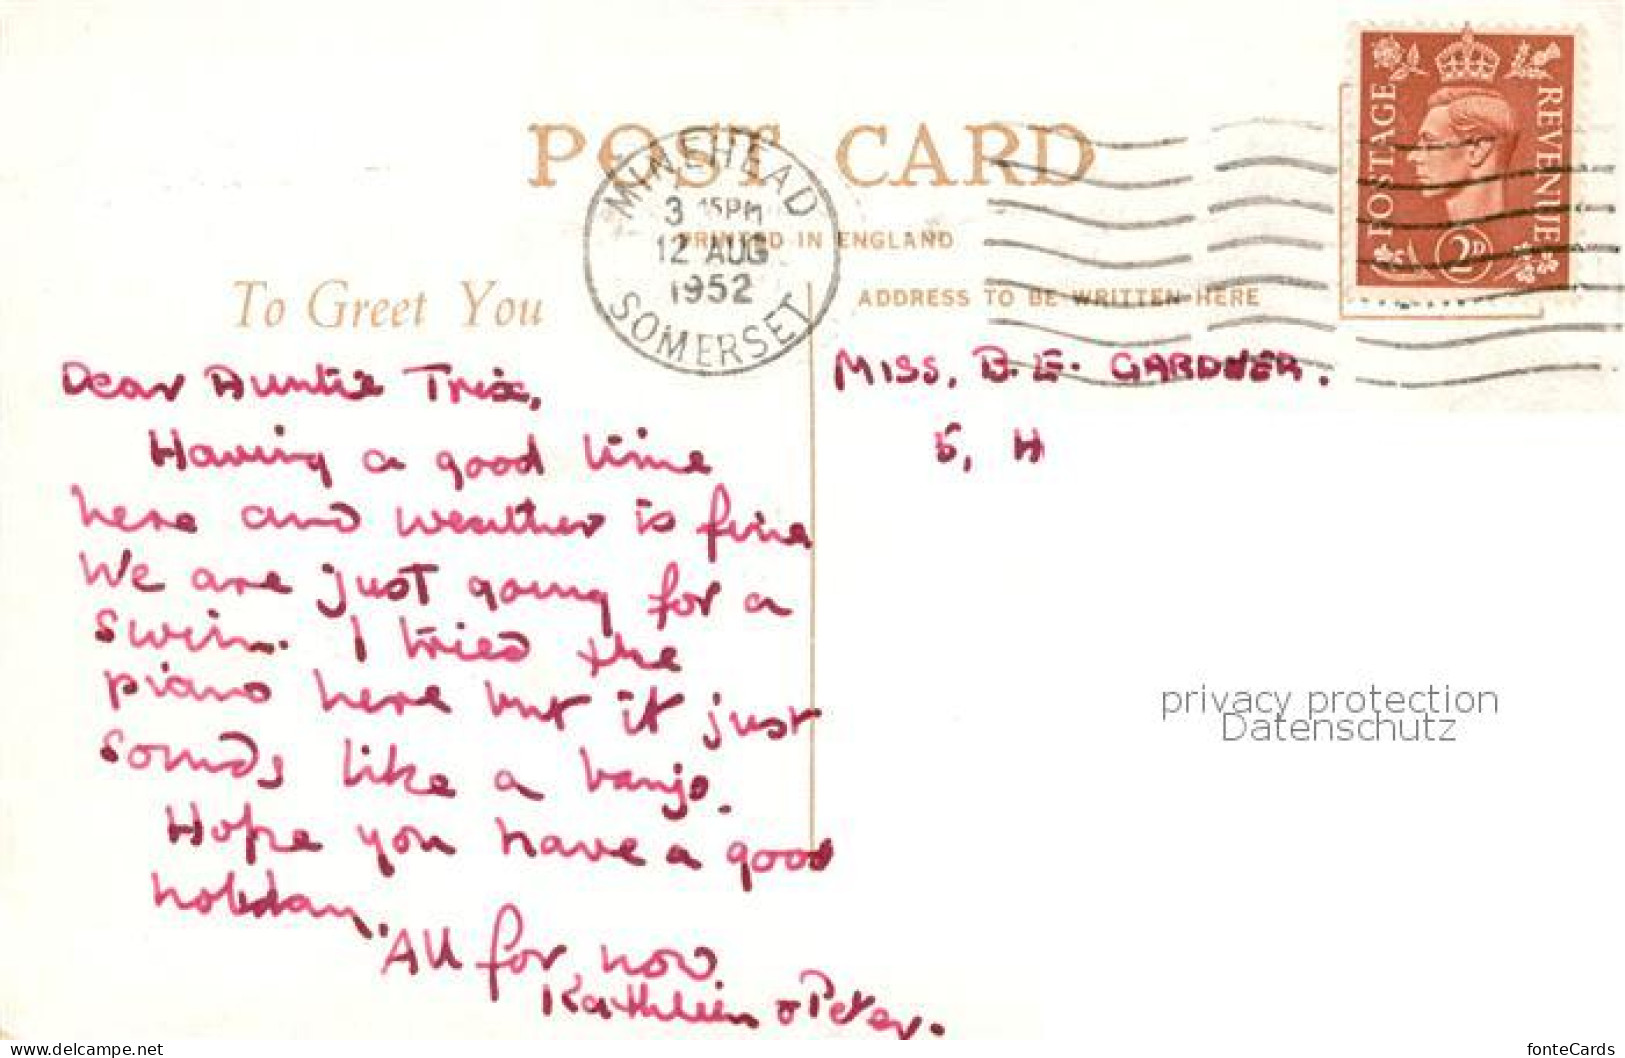 POST CARD
MINEHEAD
3 15PM
12 AUG
1952
SOMERSET
PRINTED IN ENGLAND
ADDRESS TO BE WRITTEN HERE
POSTAGE REVENUE
2D
To Greet You
Dear Auntie Trix,
Having a good time
here and weather is fine
We are just going for a
swim. I tried the
piano here but it just
sounds like a banjo.
Hope you have a good
holiday.
All for now
Kathleen & Peter.
MISS. B.E. GARDNER.
5, H
privacy protection
Datenschutz
www.delcampe.net
fonteCards